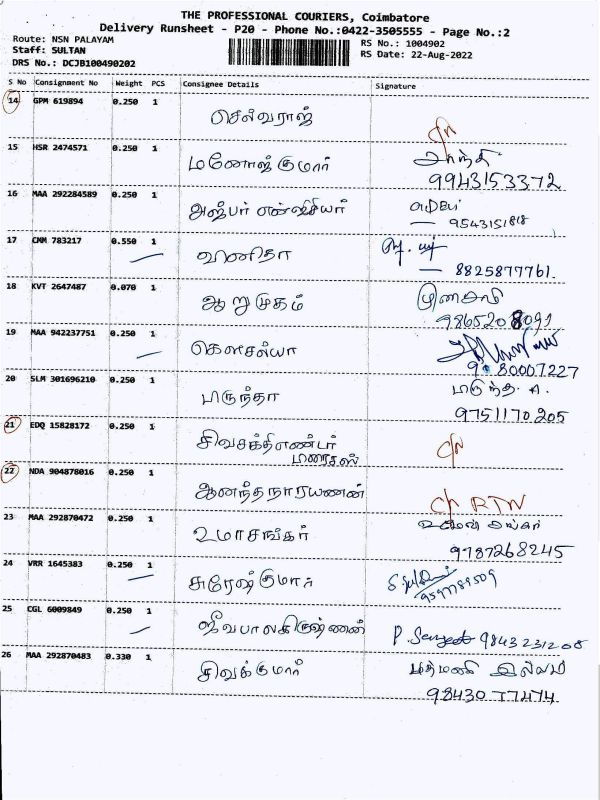 THE PROFESSIONAL COURIERS, Coimbatore
Delivery Runsheet - P20 - Phone No.:0422-3505555 - Page No.:2
Route: NSN PALAYAM RS No.: 1004902
Staff: SULTAN RS Date: 22-Aug-2022
DRS No.: DCJB100490202
S No Consignment No Weight PCS Consignee Details Signature
14 GPM 619894 0.250 1 செல்வராஜ்
15 HSR 2474571 0.250 1 மனோஜ்குமார் சாந்தி
9943153372
16 MAA 292284589 0.250 1
— 9543151818
17 CMM 783217 0.550 1 வனிதா
— 8825877761.
18 KVT 2647487 0.070 1 ஆறுமுகம்
9865208091
19 MAA 942237751 0.250 1 கௌசல்யா
9080007227
20 SLM 301696210 0.250 1 மருந்தா A.
9751170205
21 EDQ 15828172 0.250 1
22 NDA 904878016 0.250 1 ஆனந்தநாராயணன் RTN
23 MAA 292870472 0.250 1 உமாசங்கர்
9787268245
24 VRR 1645383 0.250 1 சுரேஷ்குமார்
9597789509
25 CGL 6009849 0.250 1 ஜீவபாலகிருஷ்ணன் 9843231208
26 MAA 292870483 0.330 1 சிவக்குமார் பத்மணி இல்லம்
98430 77474